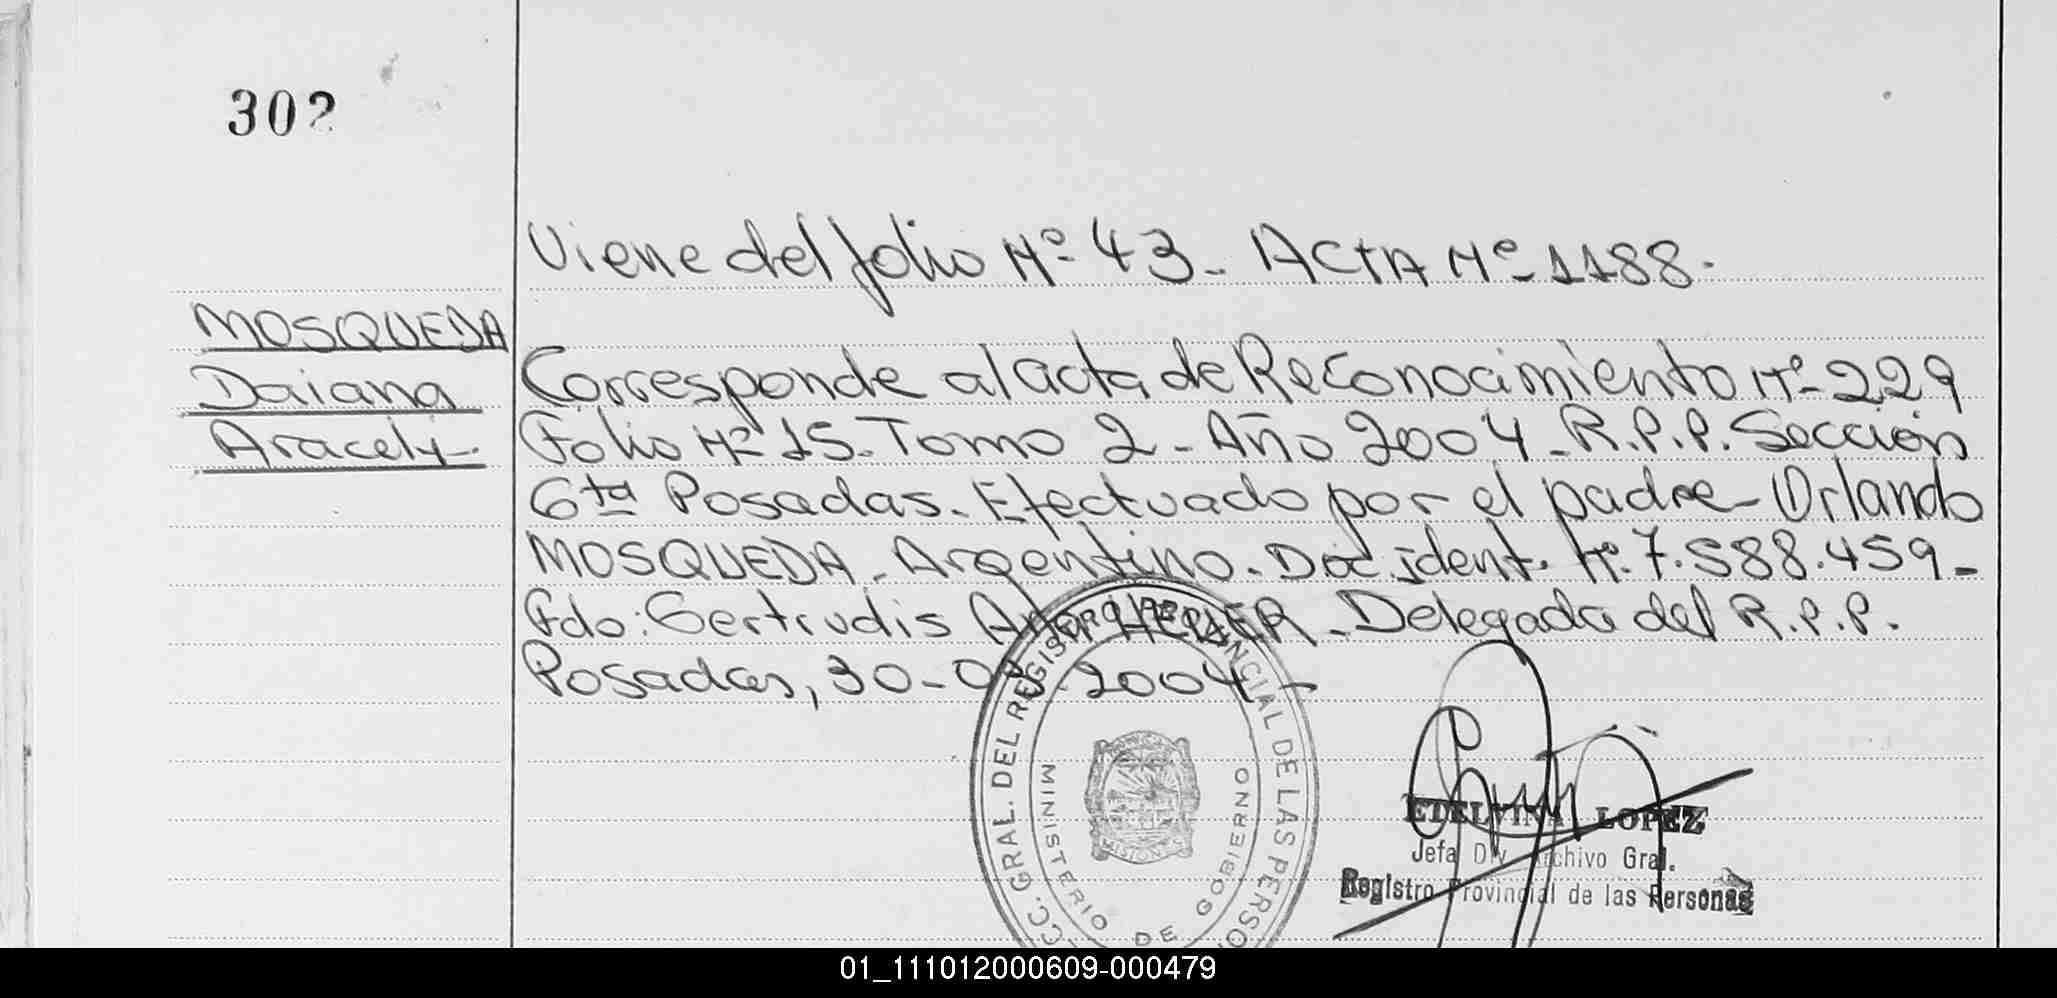 302
Viene del folio Nº 43 - ActA Nº 1188.
MOSQUEDA
Daiana
Aracely.
Corresponde al acta de Reconocimiento Nº 229
Folio Nº 15. Tomo 2 - Año 2004 - R.P.P. Sección
6ta Posadas. Efectuado por el padre - Orlando
MOSQUEDA. Argentino. Doc ident. Nº 7.588.459 -
Fdo: Gertrudis - Delegada del R.P.P.
Posadas, 30 - 2004 -
GRAL. DEL REGISTRO PROVINCIAL DE LAS PERSO
MINISTERIO DE GOBIERNO
MISIONES
EDELVINA LOPEZ
Jefa Div Archivo Gral.
Registro Provincial de las Personas
01_111012000609-000479